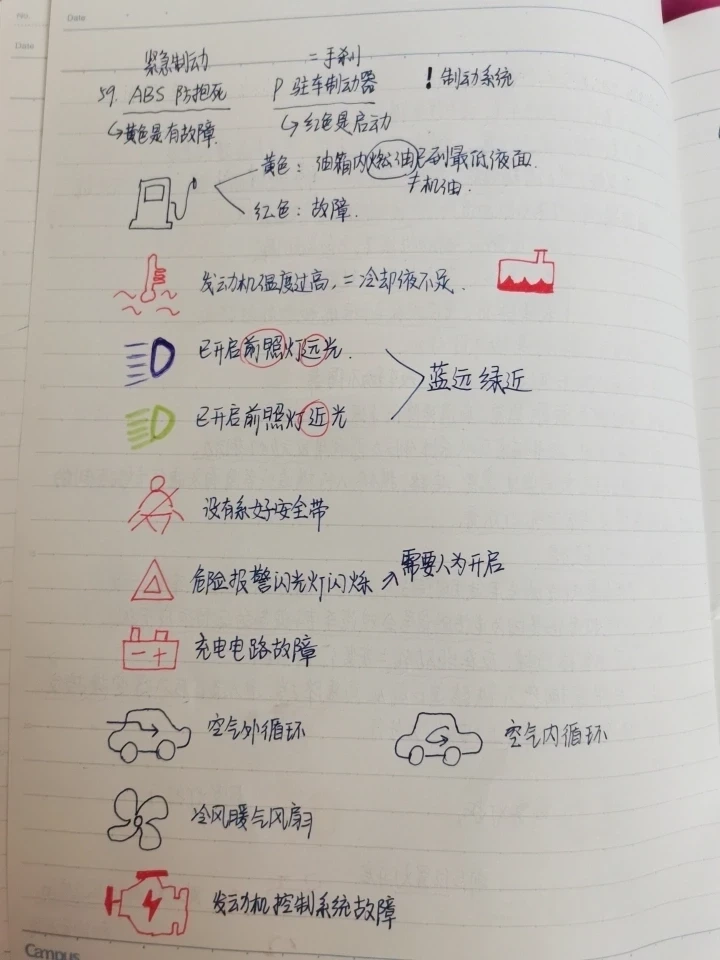 No.
Date
Date
紧急制动
=手刹
59. ABS 防抱死
P 驻车制动器
! 制动系统
↳黄色是有故障.
↳红色是启动
黄色: 油箱内燃油已到最低液面.
≠机油.
红色: 故障.
发动机温度过高. =冷却液不足.
已开启前照灯远光.
蓝远绿近
已开启前照灯近光
没有系好安全带
危险报警闪光灯闪烁 → 需要人为开启
- +
充电电路故障
空气外循环
空气内循环
冷风暖气风扇
发动机控制系统故障
Campus